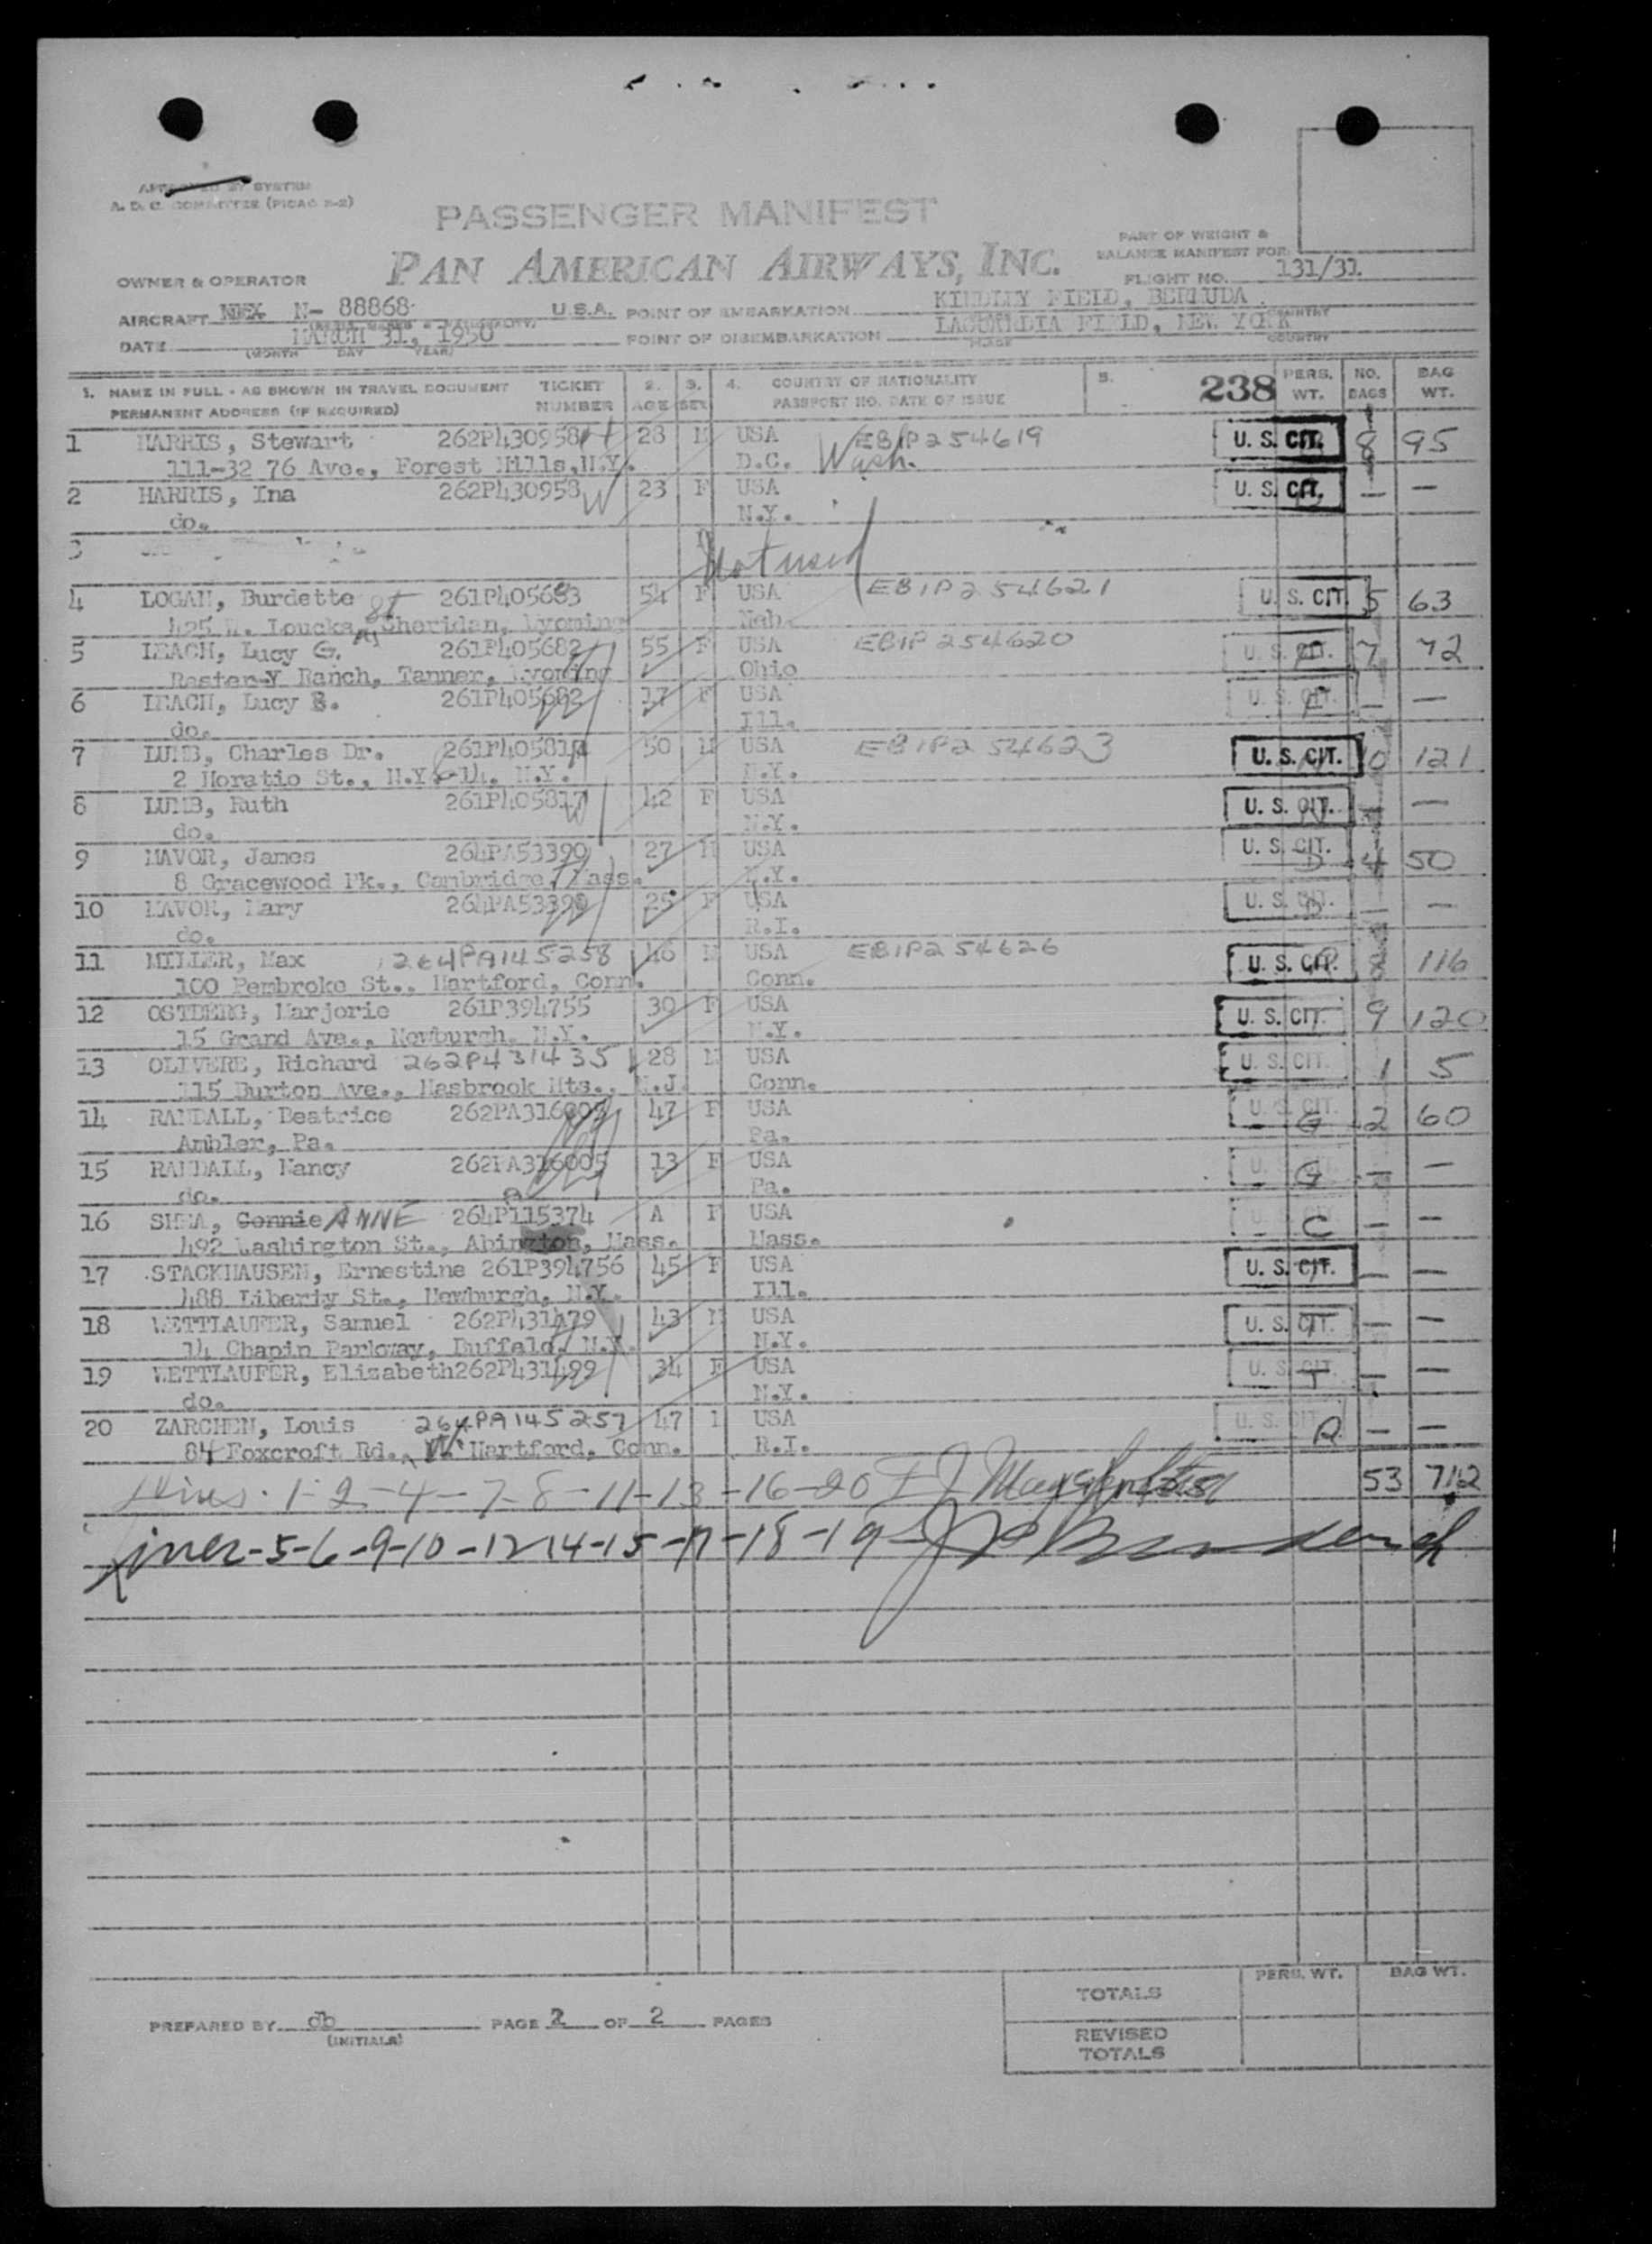 APPROVED BY SYSTEM
A. D. C. COMMITTEE (PICAO R-2)
PASSENGER MANIFEST
PAN AMERICAN AIRWAYS, INC.
PART OF WEIGHT &
BALANCE MANIFEST FOR:
FLIGHT NO. 131/31
OWNER & OPERATOR
AIRCRAFT N- 88868 U.S.A. POINT OF EMBARKATION KINDLEY FIELD, BERMUDA
DATE MARCH 31, 1950 POINT OF DISEMBARKATION LAGUARDIA FIELD, NEW YORK
(MONTH DAY YEAR) PLACE COUNTRY
1. NAME IN FULL - AS SHOWN IN TRAVEL DOCUMENT TICKET 2. 3. 4. COUNTRY OF NATIONALITY 5. 238 PERS. NO. BAG
PERMANENT ADDRESS (IF REQUIRED) NUMBER AGE SEX PASSPORT NO. DATE OF ISSUE WT. BAGS WT.
1 HARRIS, Stewart 262P430958 28 M USA EBIP254619 U. S. CIT. 8 95
111-32 76 Ave., Forest Hills, N.Y. D.C. Wash.
2 HARRIS, Ina 262P430958 23 F USA U. S. CIT. — —
do. N.Y.
3 Not used
4 LOGAN, Burdette 261P405683 54 F USA EBIP254621 U. S. CIT. 5 63
425 W. Loucks, St Sheridan, Wyoming Neb.
5 LEACH, Lucy G. 261P405682 55 F USA EBIP254620 U. S. CIT. 7 72
Ranch, Tanner, Wyoming Ohio
6 LEACH, Lucy B. 261P405682 17 F USA U. S. CIT. — —
do. Ill.
7 LUMB, Charles Dr. 261P405817 50 M USA EBIP254623 U. S. CIT. 10 121
2 Horatio St., N.Y.-14. N.Y. N.Y.
8 LUMB, Ruth 261P405817 42 F USA U. S. CIT. — —
do. N.Y.
9 MAVOR, James 264PA53390 27 M USA U. S. CIT. D 4 50
8 Gracewood Pk., Cambridge, Mass. N.Y.
10 MAVOR, Mary 264PA53390 25 F USA U. S. CIT. D — —
do. R.I.
11 MILLER, Max 264PA145258 46 M USA EBIP254626 U. S. CIT. 8 116
100 Pembroke St., Hartford, Conn. Conn.
12 OSTBERG, Marjorie 261P394755 30 F USA U. S. CIT. 9 120
15 Grand Ave., Newburgh, N.Y. N.Y.
13 OLIVERE, Richard 262P431435 28 M USA U. S. CIT. 1 5
115 Burton Ave., Hasbrook Hts., N.J. Conn.
14 RANDALL, Beatrice 262PA316005 47 F USA U. S. CIT. G 2 60
Ambler, Pa. Pa.
15 RANDALL, Nancy 262PA316005 13 F USA U. S. CIT. G — —
do. Pa.
16 SHEA, Connie ANNE 264P115374 A F USA U. S. CIT. C — —
492 Washington St., Abington, Mass. Mass.
17 STACKHAUSEN, Ernestine 261P394756 45 F USA U. S. CIT. — —
488 Liberty St., Newburgh, N.Y. Ill.
18 WETTLAUFER, Samuel 262P431479 43 M USA U. S. CIT. — —
14 Chapin Parkway, Buffalo, N.Y. N.Y.
19 WETTLAUFER, Elizabeth 262P431499 34 F USA U. S. CIT. — —
do. N.Y.
20 ZARCHEN, Louis 264PA145257 47 USA U. S. CIT. R — —
84 Foxcroft Rd., W. Hartford, Conn. R.I.
1-2-4-7-8-11-13-16-20 53 712
-5-6-9-10-12-14-15-17-18-19
PERS. WT. BAG WT.
TOTALS
PREPARED BY db PAGE 2 OF 2 PAGES
(INITIALS)
REVISED
TOTALS